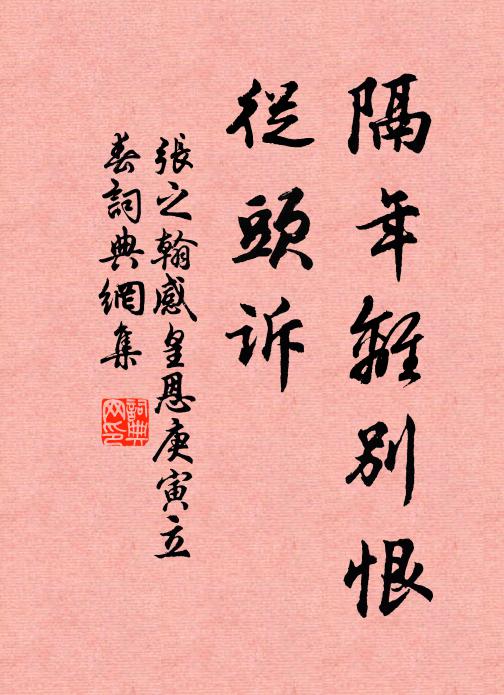 隔年離別恨
從頭訴
張之翰感皇恩庚寅立
春詞典網集
詞典
网印